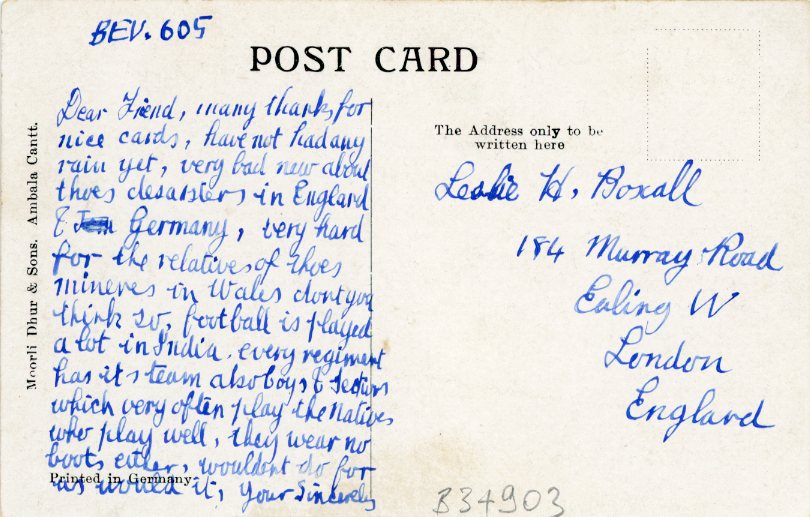 BEV. 605
POST CARD
Dear Friend, many thanks for
nice cards, have not had any
rain yet, very bad new about
thoes desarsters in England
& Germany, very hard
for the relatives of thoes
mineres in Wales dont you
think so, football is played
a lot in India. every regiment
has its team also boys & Sections
which very often play the natives
who play well, they wear no
boots either, wouldnt do for
us would it, Your Sincerely
Printed in Germany.
Moorli Dhur & Sons. Ambala Cantt.
The Address only to be
written here
Leslie H. Boxall
184 Murray Road
Ealing W
London
England
B34903